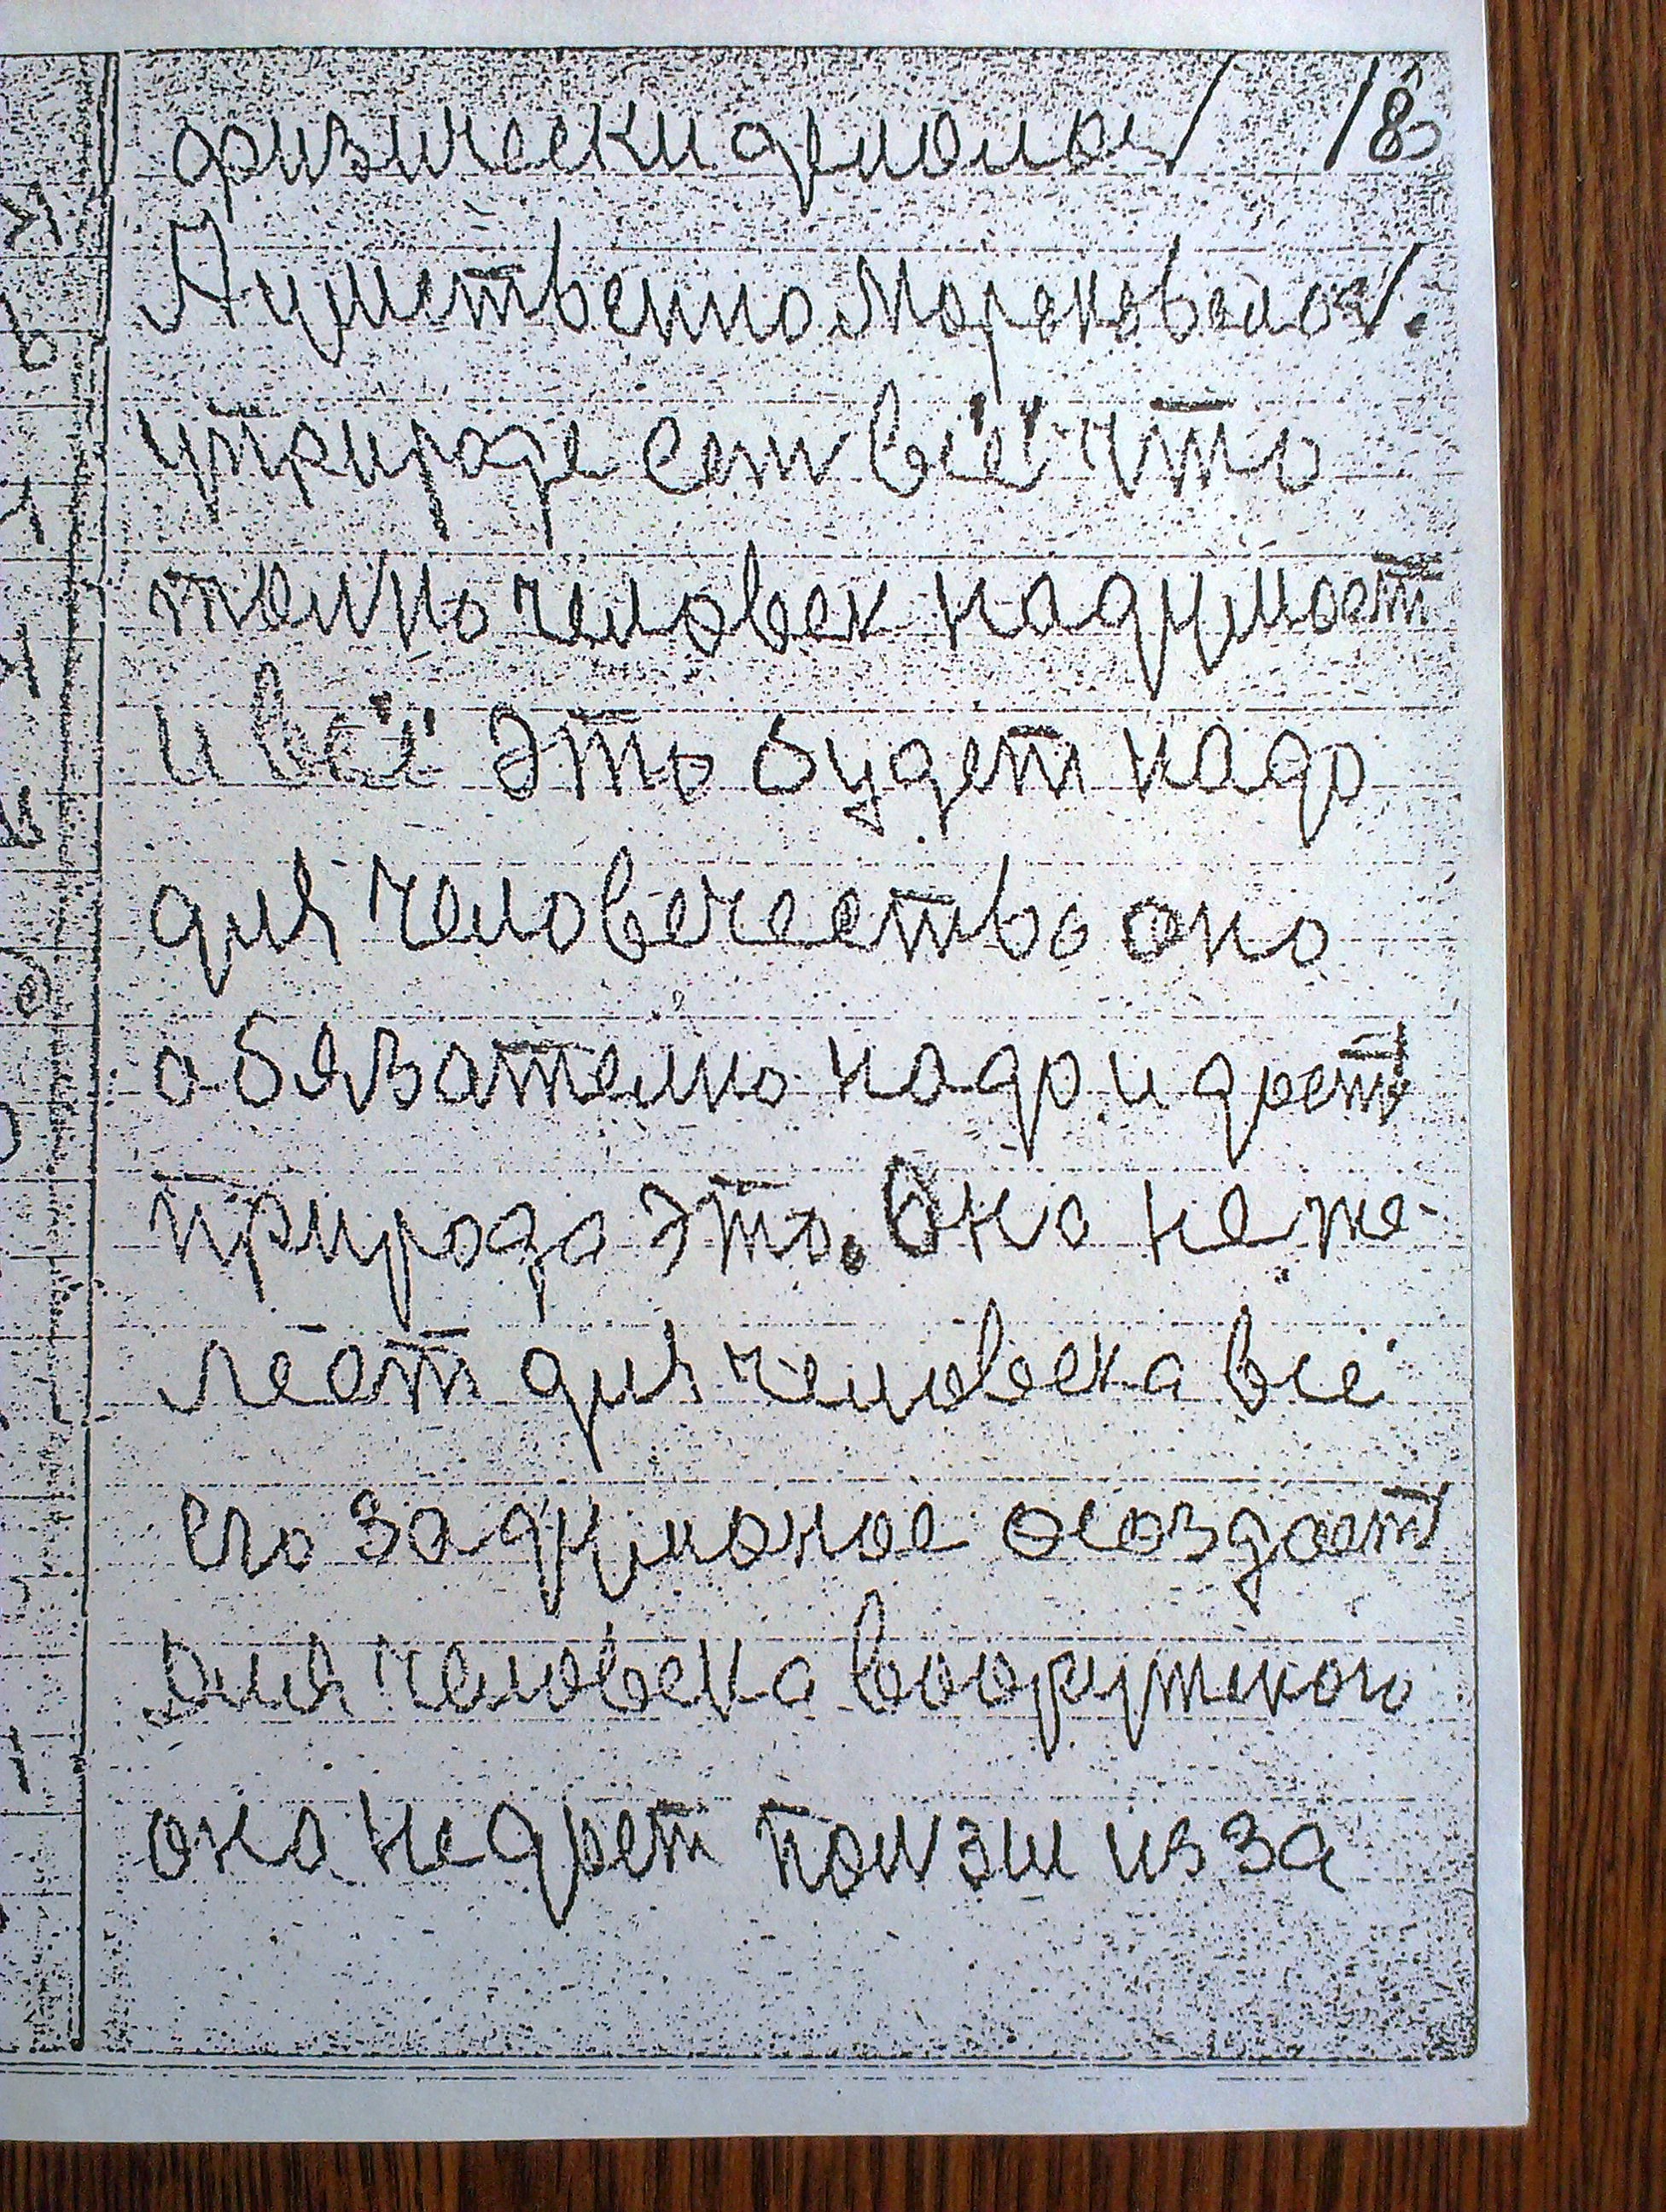 физически делолоз/ 18
А умственно мороковолоз/.
у природе ест всё что
телно человек надумоет
и всё это будет надо
для человечество оно
обязателно надо и дрет
природа это. Оно не же-
лёет для человека всё
его задуманое осоздоет
для человека вооружоного
оно недоет ползы из за